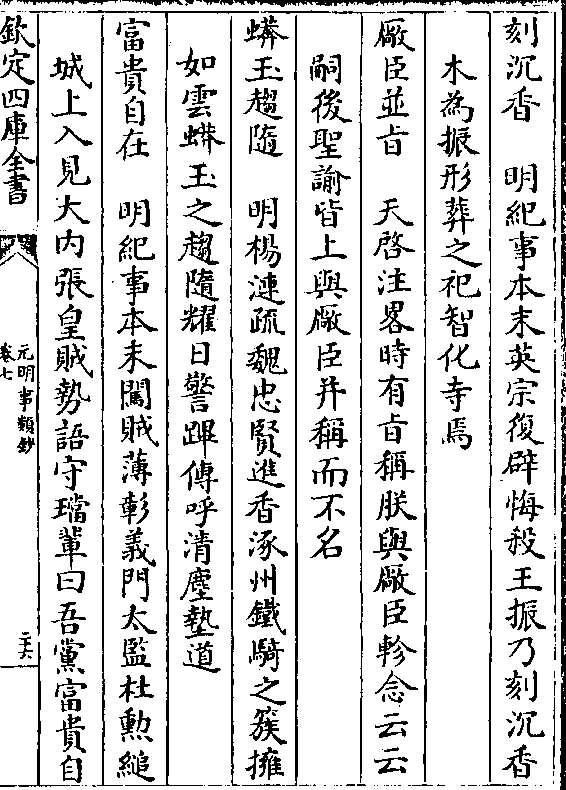 刻沉香　明紀事本末英宗復辟悔殺王振乃刻沉香
木為振形葬之祀智化寺焉
厰臣並㫖　天啓注畧時有㫖稱朕與厰臣軫念云云
嗣後聖諭皆上與厰臣并稱而不名
蟒玉趨隨　明楊漣疏魏忠賢進香涿州鐵騎之簇擁
如雲蟒玉之趨隨耀日警蹕傳呼清塵墊道
富貴自在　明紀事本末闖賊薄彰義門太監杜勲縋
城上入見大内張皇賊勢語守璫軰曰吾黨富貴自
欽定四庫全書
元明事類鈔
卷七
二十六